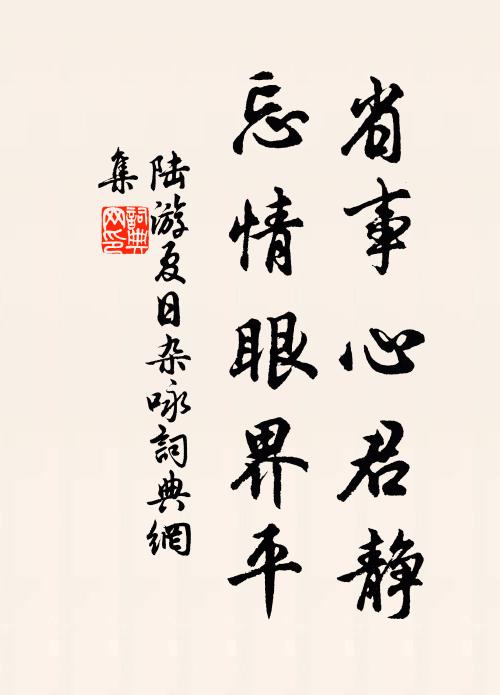 省事心君静
忘情眼界平
陆游夏日杂咏詞典網
集
詞典网印